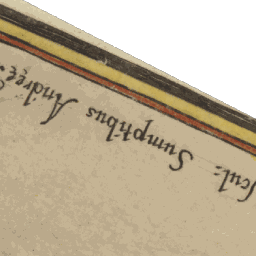 scul: Sumptibus Andreæ